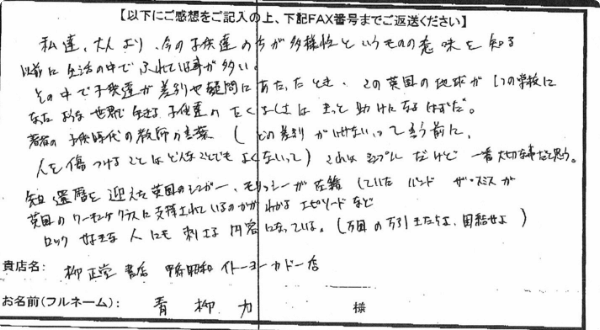 【以下にご感想をご記入の上、下記FAX番号までご返送ください】
私達、大人より、今の子供達の方が多様性というものの意味を知る
以前に生活の中でふれている事が多い。
その中で子供達が差別や疑問にあたったとき、この英国の地球が1つの学校に
なったような世界で生きる子供達のたくましさはきっと助けになるはずだ。
著者の子供時代の教師の言葉（どの差別がいけないって言う前に、
人を傷つけることはどんなことでもよくないって）これはシンプルだけど一番大切な事だと思う。
還暦を迎えた英国のシンガー、モリッシーが在籍していたバンド ザ・スミスが
英国のワーキングクラスに支持されているのかがわかるエピソードなど
ロック好きな人にも刺さる内容になっている。（万国の万引きたちよ、団結せよ）
貴店名: 柳正堂書店 甲府昭和イトーヨーカドー店
お名前(フルネーム): 青柳 力 様